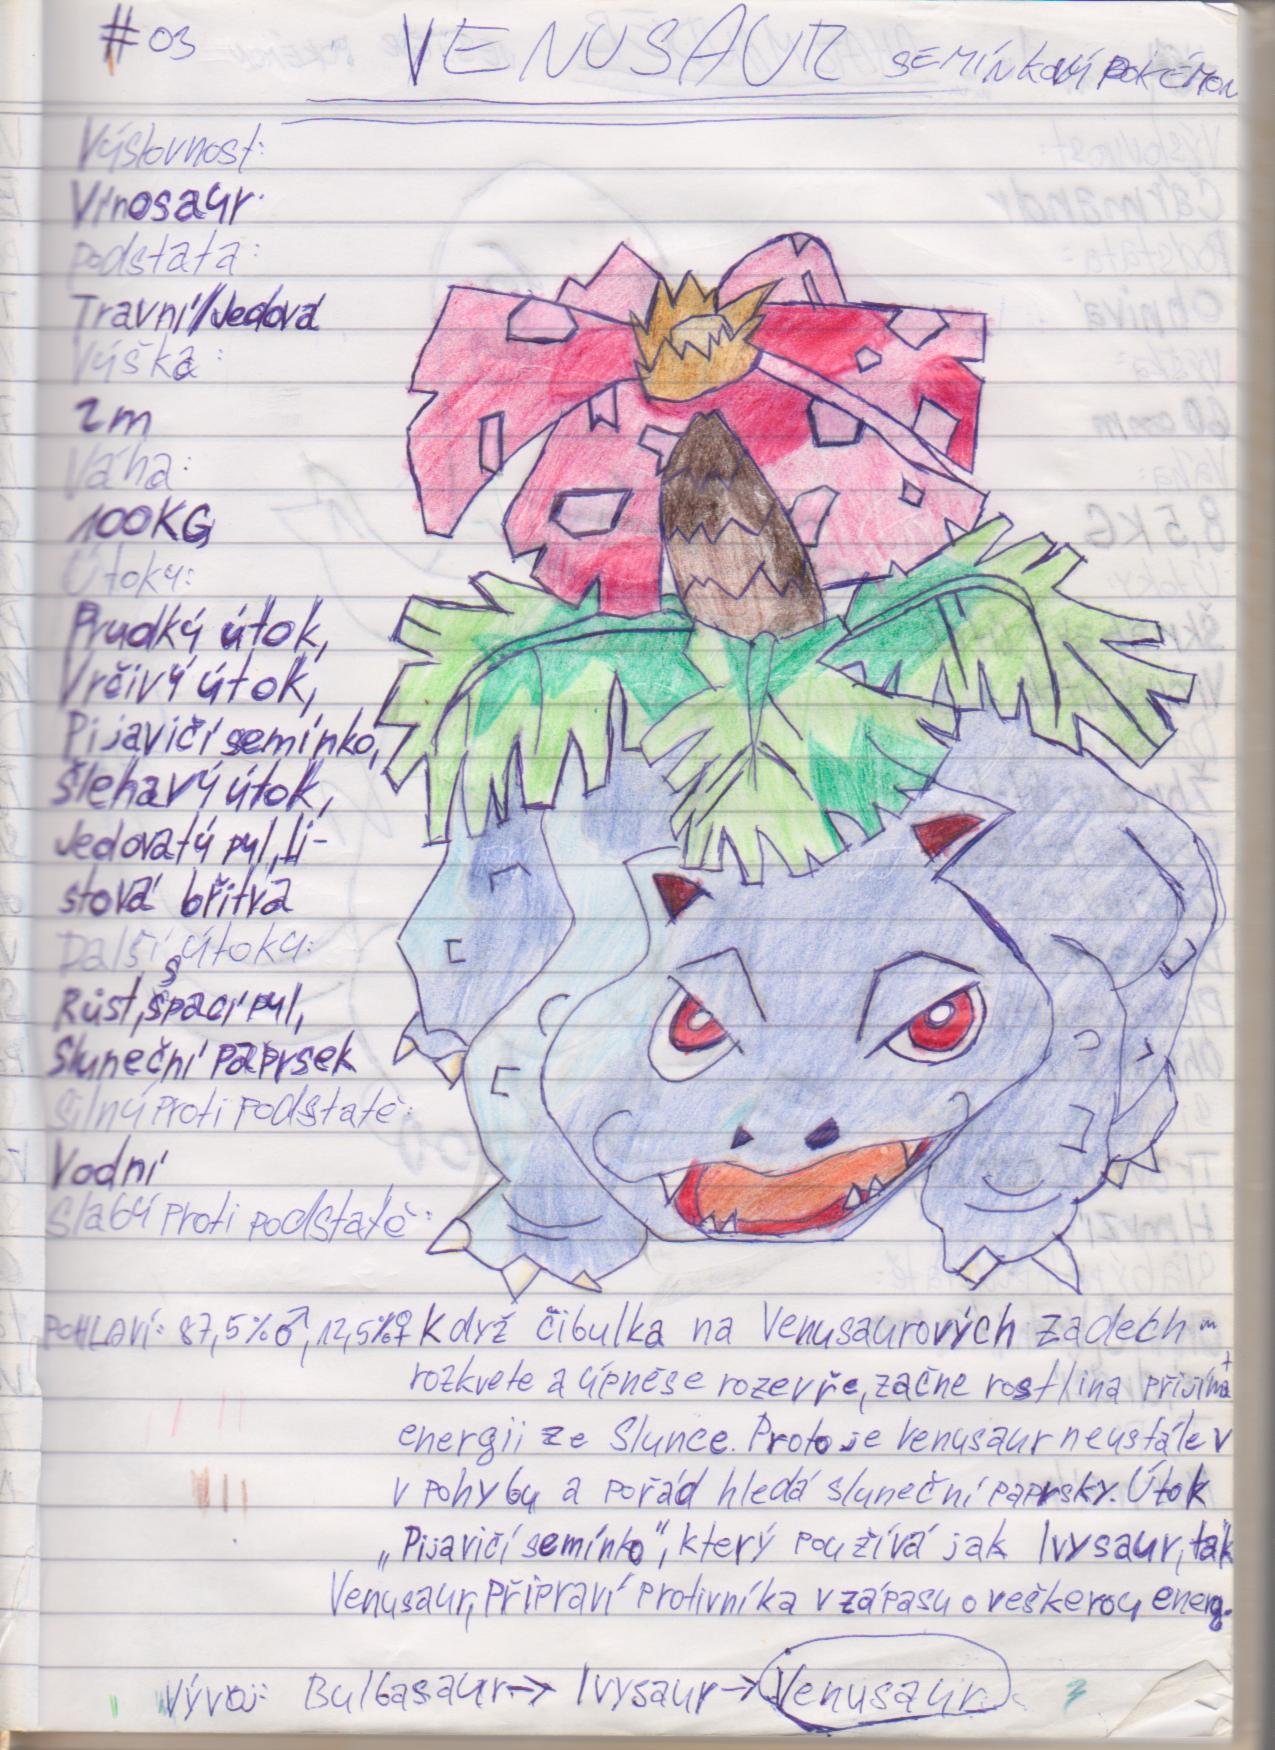 #03 VENUSAUR SEMÍNKOVÝ POKÉMON
Výslovnost:
Vínosaur
Podstata:
Travní/Jedová
Výška:
2m
Váha:
100KG
Útoky:
Prudký útok,
Vrčivý útok,
Pijavičí semínko,
Šlehavý útok,
Jedovatý pyl, li-
stová břitva
Další útoky:
Růst, špací pyl,
Sluneční paprsek
Silný proti podstatě:
Vodní
Slabý proti podstatě:
POHLAVÍ: 87,5%♂, 12,5%♀ Když cibulka na Venusaurových zádech
rozkvete a úpně se rozevře, začne rostlina přijímat
energii ze Slunce. Proto je Venusaur neustále v
v pohybu a pořád hledá sluneční paprsky. Útok
„Pijavičí semínko", který používá jak Ivysaur, tak
Venusaur, připraví protivníka v zápasu o veškerou energ.
Vývoj: Bulbasaur→ Ivysaur→ Venusaur